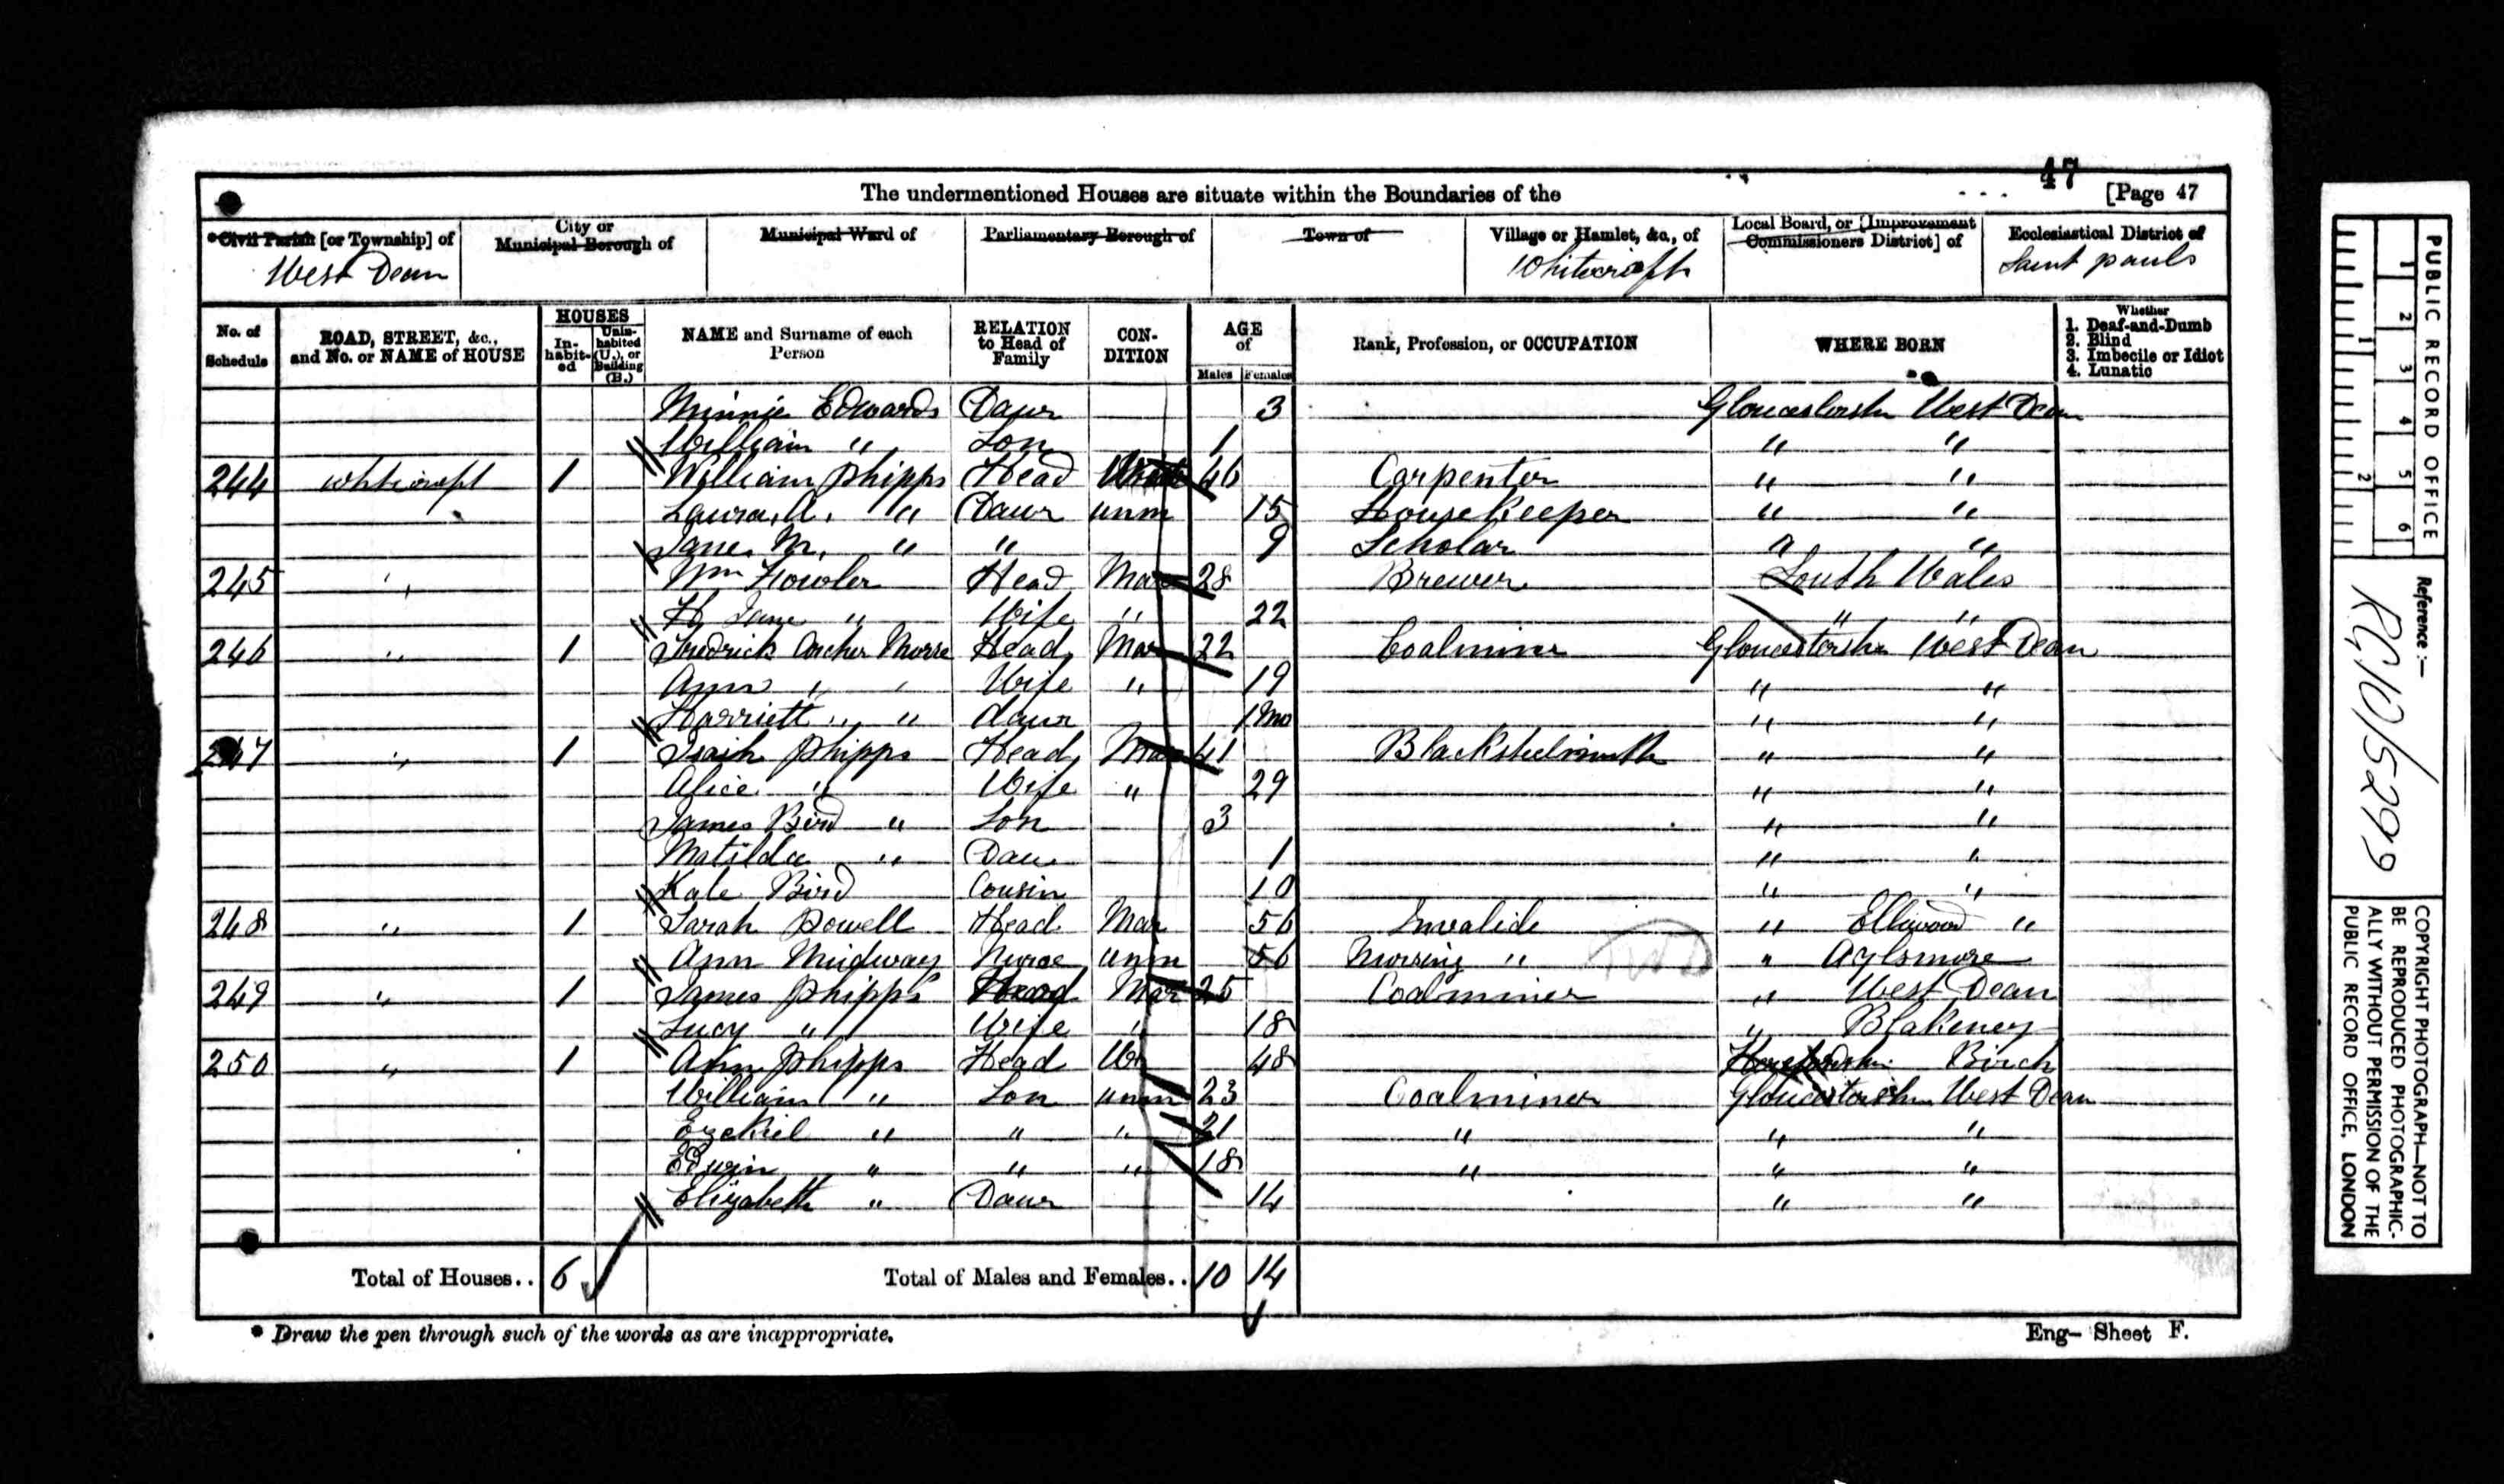 47
The undermentioned Houses are situate within the Boundaries of the [Page 47
*Civil Parish [or Township] of West Dean
City or Municipal Borough of
Municipal Ward of
Parliamentary Borough of
Town of
Village or Hamlet, &c., of Whitecroft
Local Board, or [Improvement Commissioners District] of
Ecclesiastical District of Saint pauls
No. of Schedule
ROAD, STREET, &c., and No. or NAME of HOUSE
HOUSES
In-habit-ed
Unin-habited (U.), or Building (B.)
NAME and Surname of each Person
RELATION to Head of Family
CON-DITION
AGE of
Males Females
Rank, Profession, or OCCUPATION
WHERE BORN
Whether
1. Deaf-and-Dumb
2. Blind
3. Imbecile or Idiot
4. Lunatic
Minnie Edwards Daur 3 West Dean
William " Son 1 " "
244 Whitecroft 1 William Phipps Head 46 Carpenter " "
Laura, A. " Daur unm 15 Housekeeper " "
Jane M. " " 9 Scholar " "
245 " Wm Fowler Head Mar 28 Brewer South Wales
H Jane " Wife " 22 " "
246 " 1 Fredrick Archer Morse Head Mar 22 Coalminer West Dean
Ann " " Wife " 19 " "
Harriett " " daur 1 Mo " "
247 " 1 Phipps Head Mar 41 " "
Alice " Wife " 29 " "
James Bird " Son 3 " "
Matilda " Dau 1 " "
Kate Bird Cousin 10 " "
248 " 1 Sarah Powell Head Mar 56 Invalide " Ellwood "
Ann Midway Nurse unm 56 Nursing " " Aylsmore
249 " 1 James Phipps Head Mar 25 Coalminer " West Dean
Lucy " Wife " 18 " Blakeney
250 " 1 Ann Phipps Head 48 Birch
William " Son unm 23 Coalminer West Dean
Ezekiel " " " 21 " " "
Edwin " " " 18 " " "
Elizabeth " Daur 14 " "
Total of Houses.. 6 Total of Males and Females.. 10 14
* Draw the pen through such of the words as are inappropriate.
Eng- Sheet F.
1 2 3 4 5 6
1 2
PUBLIC RECORD OFFICE
Reference:-
RG10/5299
COPYRIGHT PHOTOGRAPH—NOT TO
BE REPRODUCED PHOTOGRAPHIC-
ALLY WITHOUT PERMISSION OF THE
PUBLIC RECORD OFFICE, LONDON